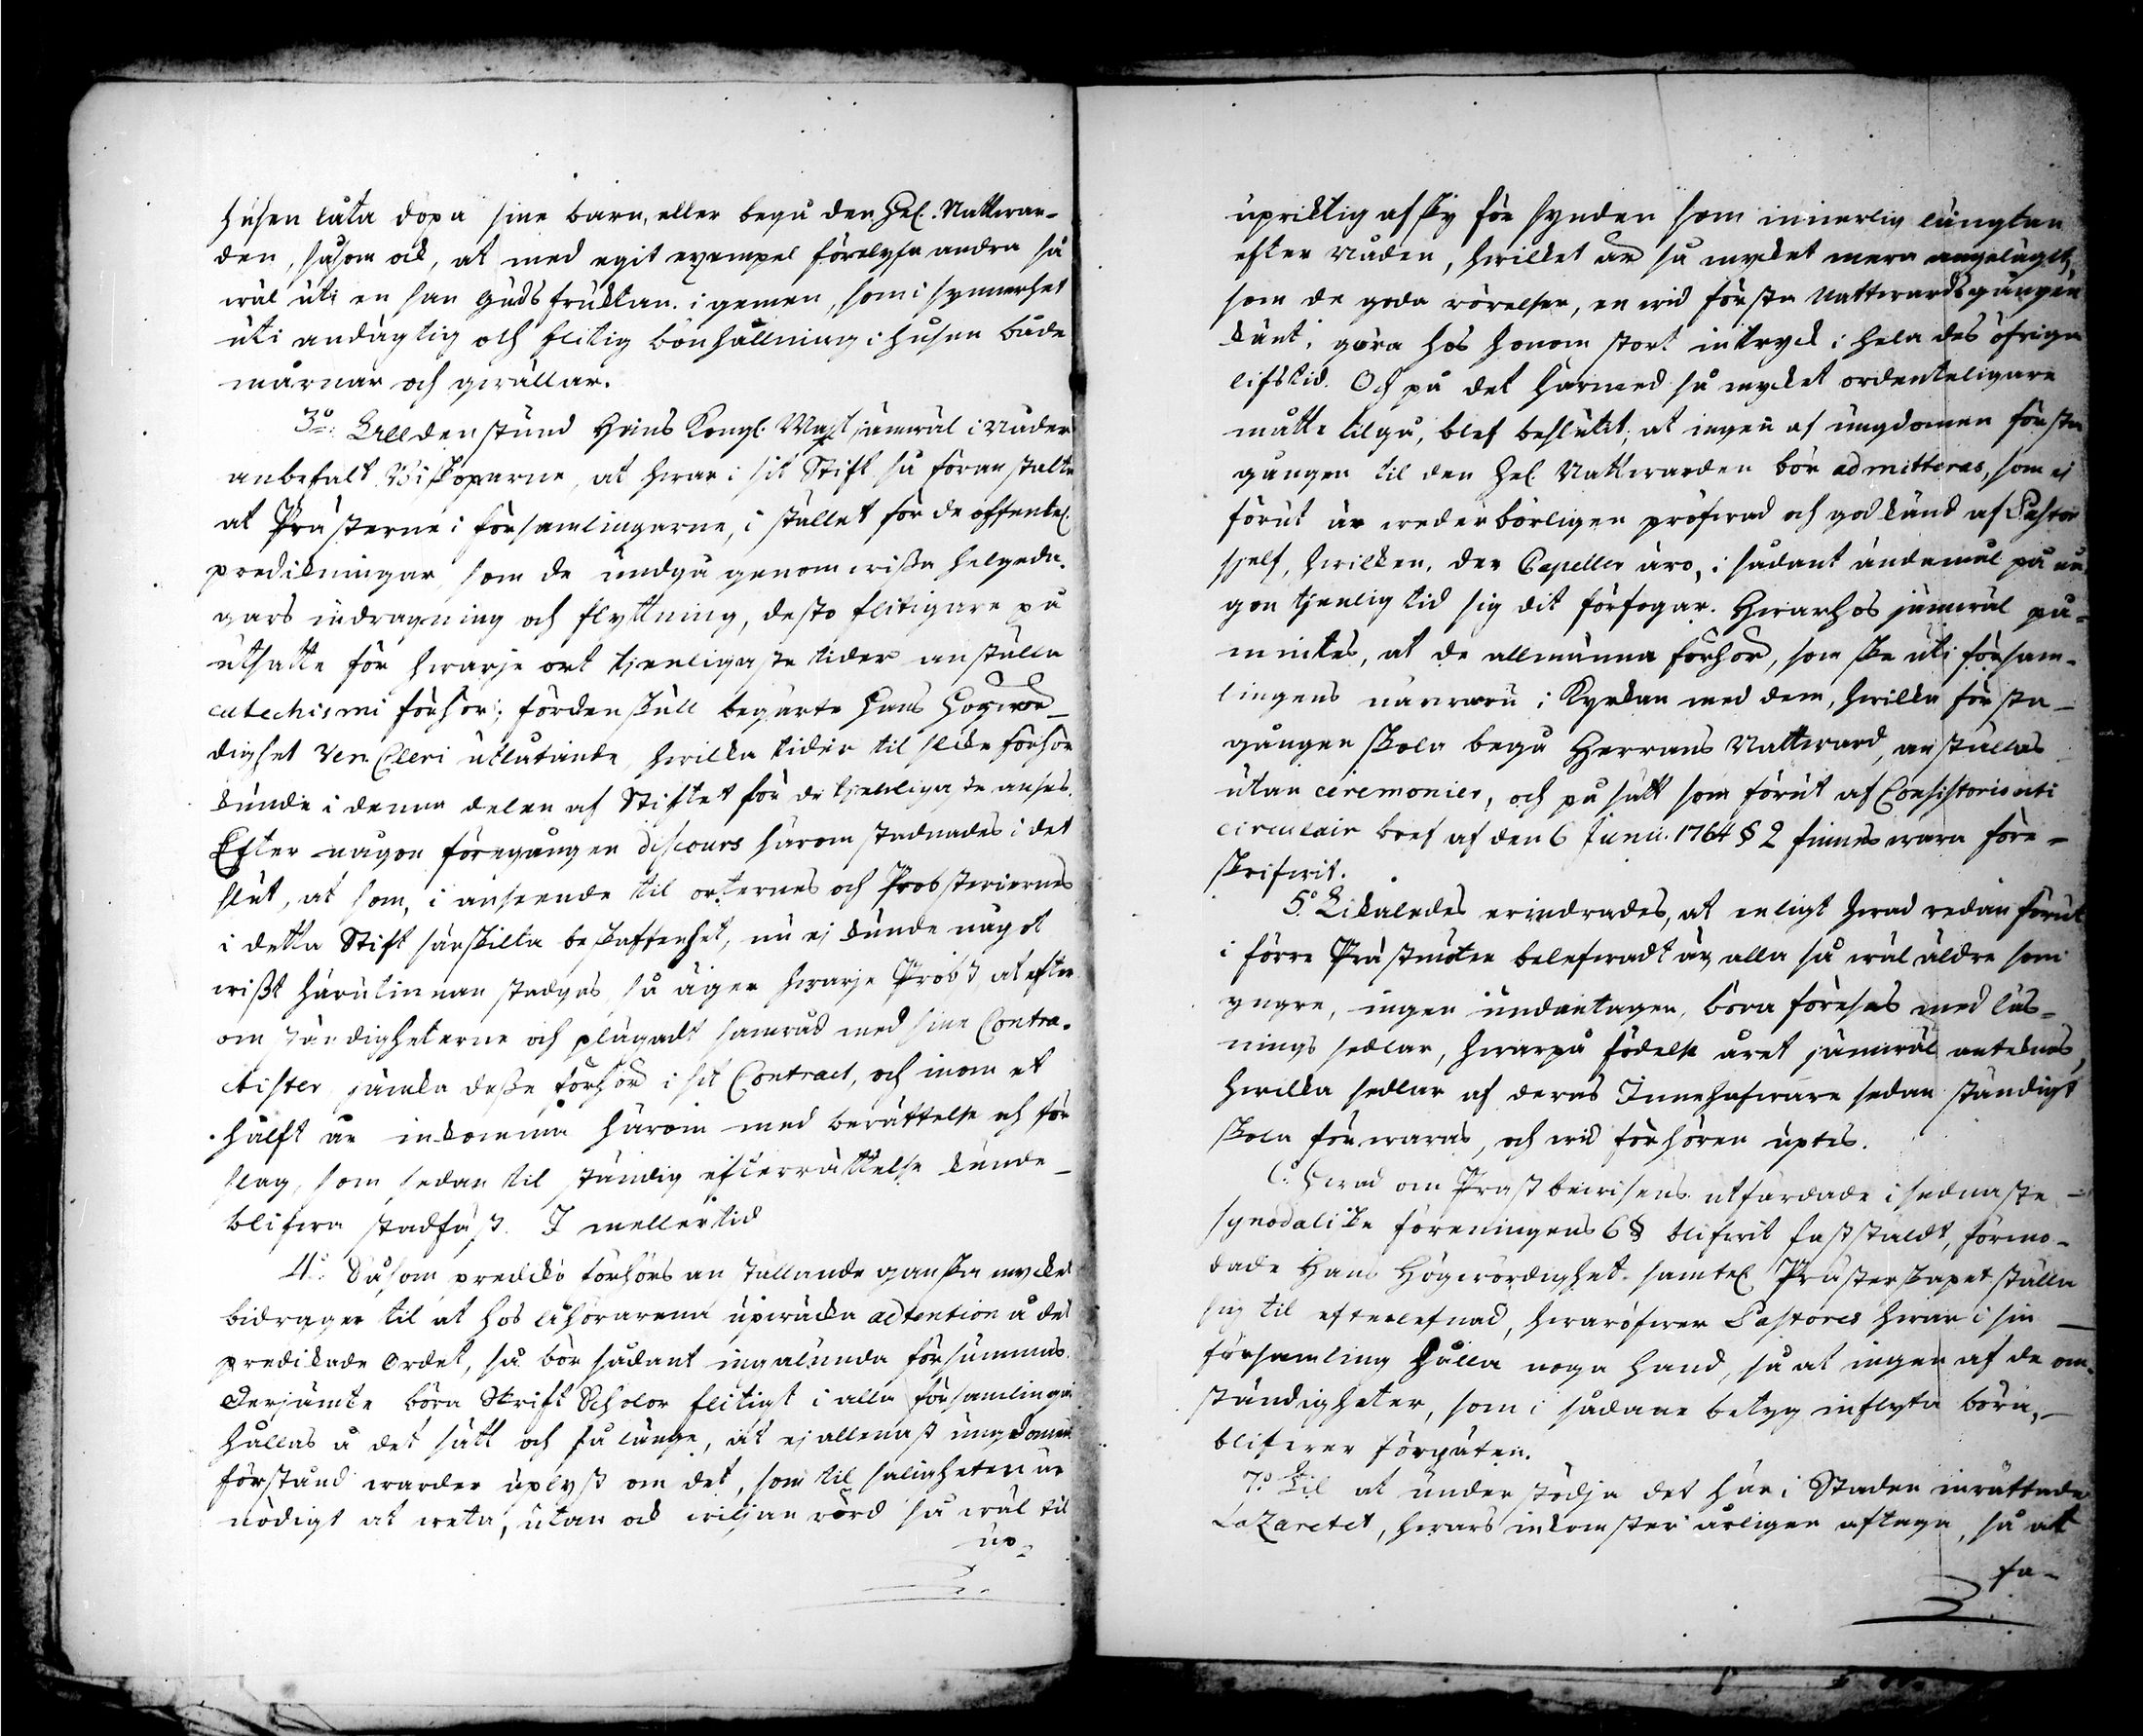 husen låta döpa sine barn, eller begå den Hel. Nattwar-
den, såsom ock, at med egit exempel förelysa andra så
wäl uti en san Gudsfruktan i gemen, som i synnerhet
uti andägtig och flitig bönhållning i husen både
mårnar och qwällar.
3o. Alldenstund Hans Kongl. Majt jämwäl i Nåder
anbefalt Biskoparne, at hwar i sit Stift så föranstalta
at Prästerne i församlingarne, i stället för de offentel.
predikningar som de undgå genom wissa helgeda-
gars indragning och flyttning, desto flitigare på
utsatte för hwarje ort tjenligaste tider anställa
catechismi förhör; fördenskull begärte Hans Högwör-
dighet Ven. Cleri utlåtande, hwilka tider til slike förhör
kunde i denna delen af Stiftet för de tjenligaste anses.
Efter någon föregången discours härom stadnades i det
slut, at som, i anseende til orternes och Probsteriernes
i detta Stift särskilta beskaffenhet, nu ej kunde något
wißt härutinnan stadgas, så äger hwarje Probst at efter
omständigheterne och plägadt samråd med sine Contra-
ctister jämka deße förhör i sit Contract, och inom et
hälft år inkomma härom med berättelse och för-
slag, som sedan til ständig efterrättelse kunde
blifwa stadfäst. I medlertid
4o. Såsom predikoförhörs anställande ganska mycket
bidrager til at hos åhörarena upwäcka attention å det
predikade Ordet, så bör sådant ingalunda försummas.
Derjämte böra Skrift Scholor flitigt i alla församlingar
hållas å det sätt och så länge, at ej allenast ungdomens
förstånd warder uplyst om det, som til saligheten är
nödigt at weta, utan ock wiljan rörd så wäl til
up-
upriktig afsky för synden som innerlig längtan
efter Nåden, hwilket är så mycket mera angelägit,
som de goda rörelser, en wid första Nattwardsgången
känt, göra hos honom stort intryck i hela des öfriga
lifstid. Och på det härmed så mycket ordenteligare
måtte tilgå, blef beslutit, at ingen af ungdomen första
gången til den Hel. Nattwarden bör admitteras, som ej
förut är wederbörligen pröfwad och godkänd af Pastor
sjelf, hwilken, der Capeller äro, i sådant ändamål på nå-
gon tjenlig tid sig dit förfogar. Hwarhos jämwäl på-
mintes, at de allmänna förhör, som ske uti försam-
lingens närwaru i Kyrkan med dem, hwilka första
gången skola begå Herrans Nattward, anställas
utan ceremonier, och på sätt som förut af Consistorio uti
circulair bref af den 6 Junii 1764 § 2 finnes wara före-
skrifwit.
5o. Likaledes erindrades, at enligt hwad redan förut
i förre Prästmöten belefwadt är, alla så wäl äldre som
yngre, ingen undantagen, böra förses med läs-
nings sedlar, hwarpå födelse året jämwäl antecknas,
hwilka sedlar af deras Innehafware sedan ständigt
skola förwaras, och wid förhören uptes.
6o. Hwad om Prästbewisens utfärdade i sednaste
synodaliske föreningens 6 § blifwit faststäldt, förmo-
dade Hans Högwördighet samtel. Prästerskapet ställa
sig til efterlefnad, hwaröfwer Pastores hwar i sin
församling hålla noga hand, så at ingen af de om-
ständigheter, som i sådane betyg inflyta böra,
blifwer förgäten.
7o. Til at understödja det här i Staden inrättade
Lazaretet, hwars inkomster årligen aftaga, så at
fa-